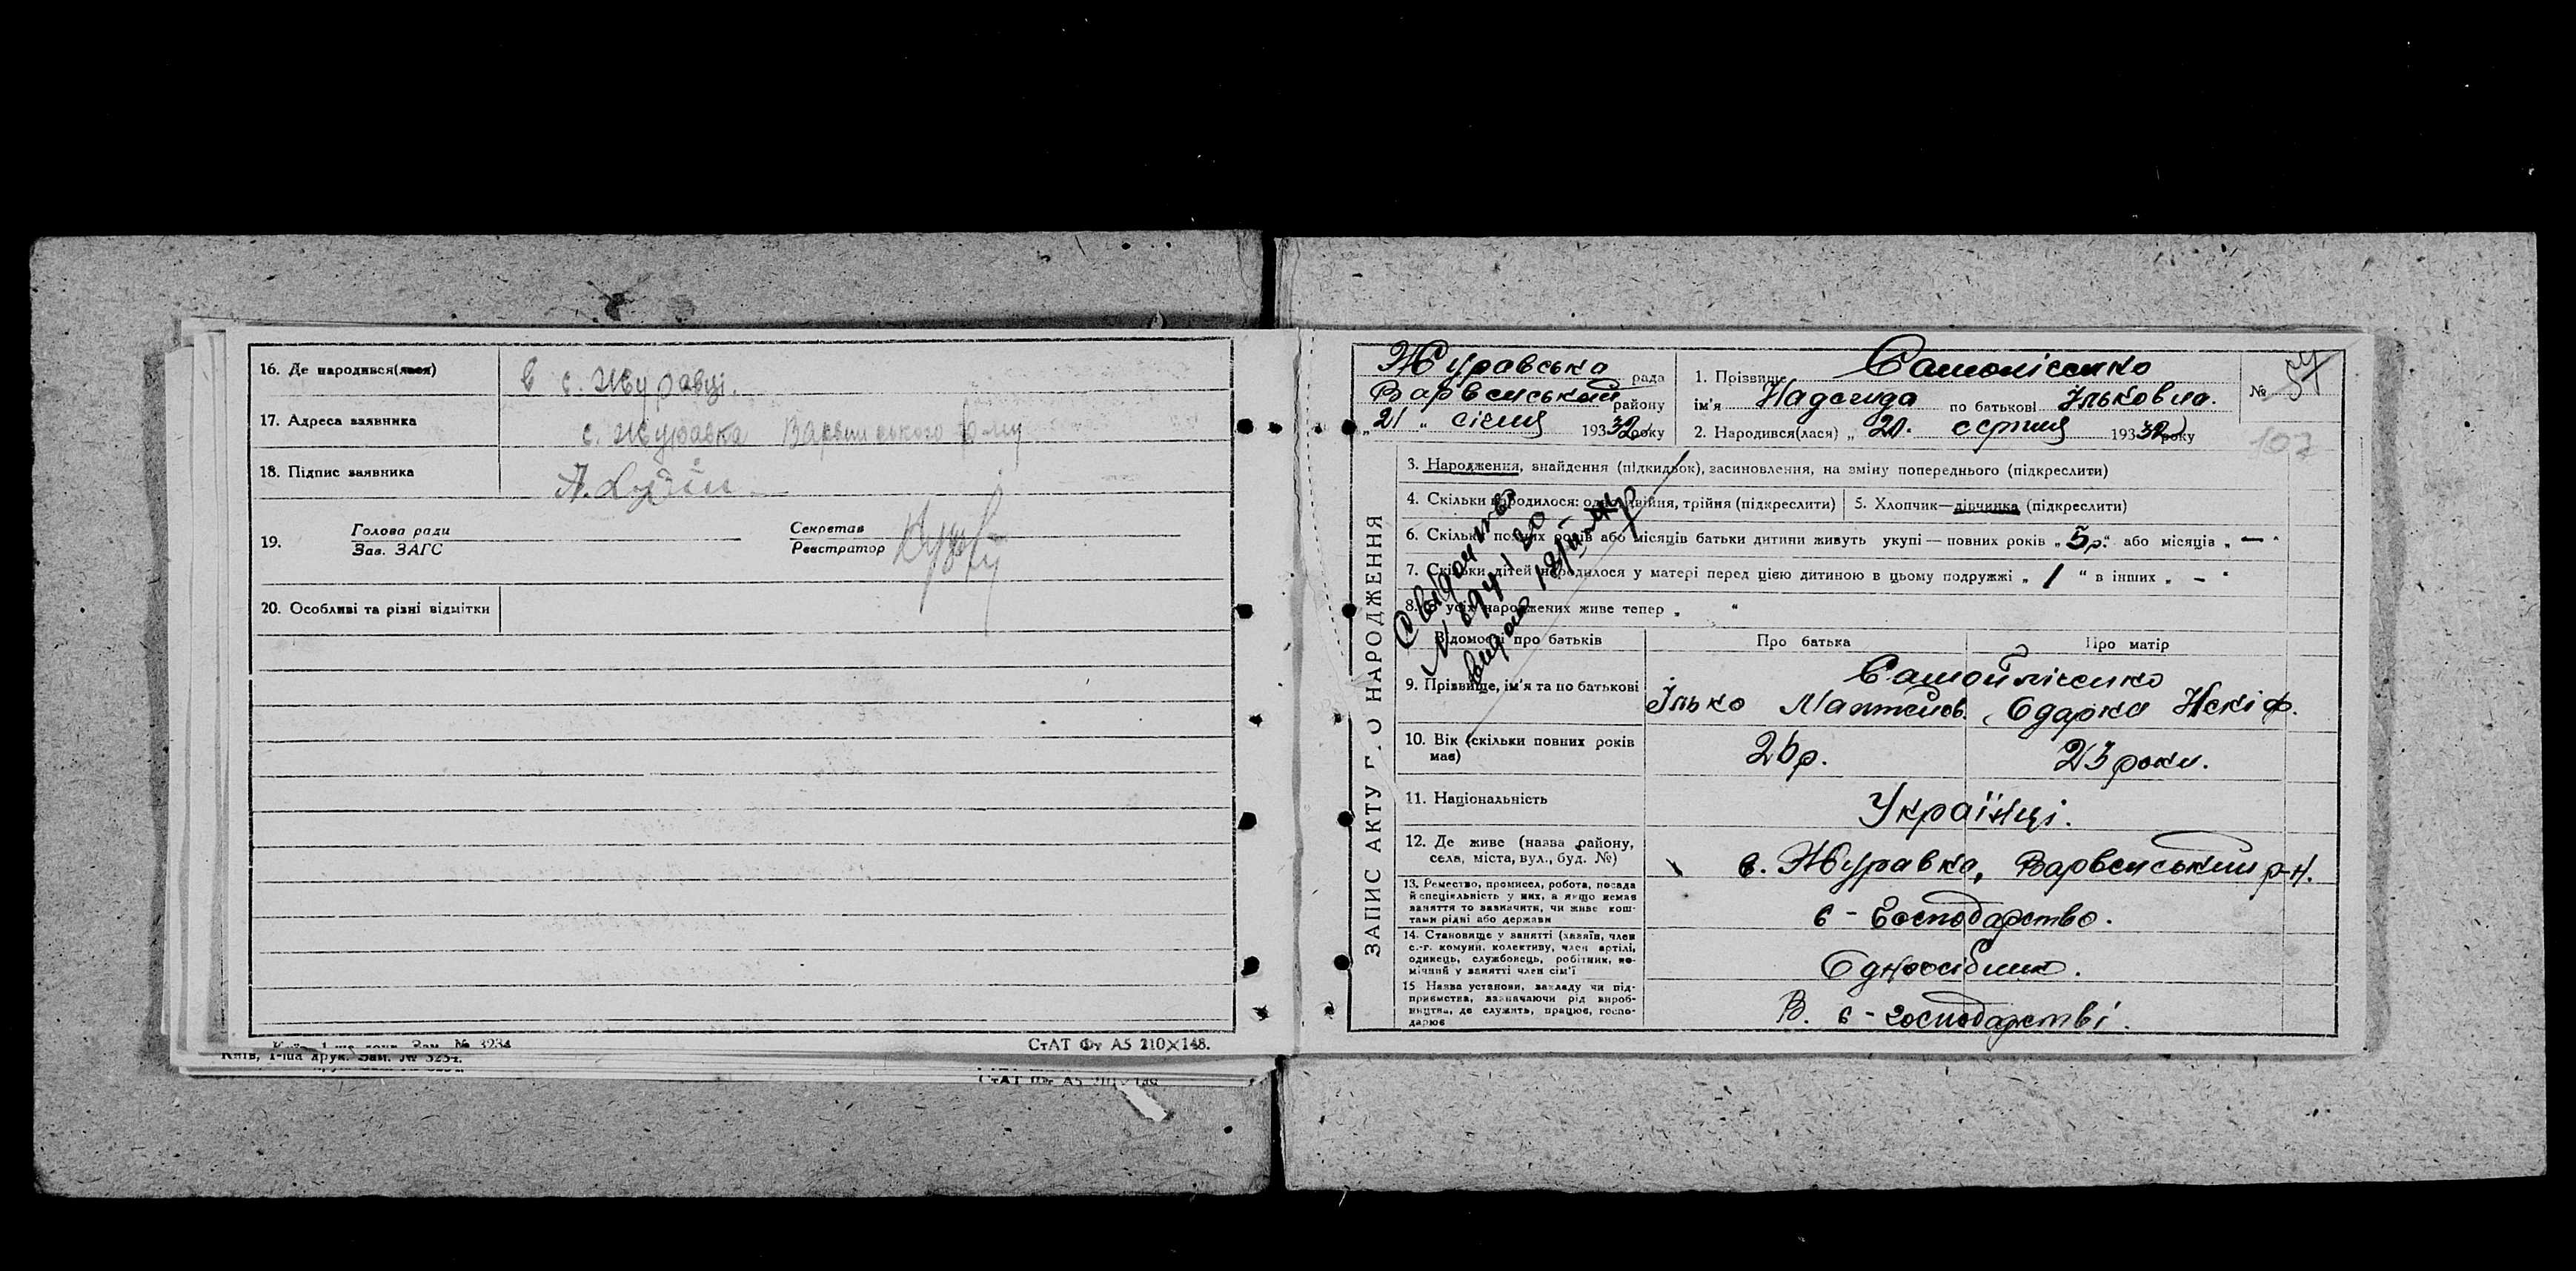 16. Де народився(лася) в с. Журавці.
17. Адреса заявника с. Журавка Варвинського р-ну
18. Підпис заявника
19. Голова ради Секретав
Зав. ЗАГС Реєстратор
20. Особливі та різні відмітки
Київ, 1-ша друк. Зам. № 3234.
СтАТ Фт А5 210×148.
ЗАПИС АКТУ ПРО НАРОДЖЕННЯ
Журавська рада
Варвенський району
„21 „ сісня 1932 року
1. Прізвище Самолісенко
ім'я Надежда по батькові Ільковна.
2. Народився(лася) „ 20. серпня 1932 року
№ 54
107
3. Народження, знайдення (підкидьок), засиновлення, на зміну попереднього (підкреслити)
4. Скільки народилося: одно, двійня, трійня (підкреслити) 5. Хлопчик—дівчинка (підкреслити)
6. Скільки повних років або місяців батьки дитини живуть укупі — повних років „ 5р.“ або місяців „ — “
7. Скільки дітей народилося у матері перед цією дитиною в цьому подружжі „ 1 “ в інших „ - “
8. З усіх народжених живе тепер „ “
Відомості про батьків Про батька Про матір
9. Прізвище, ім'я та по батькові Самойлісенко
Ілько Мантейов. Одарка Некіф.
10. Вік (скільки повних років має) 26р. 23 роки.
11. Національність Українці.
12. Де живе (назва району, села, міста, вул., буд. №) с. Журавка, Варвенський р-н.
13. Ремество, промисел, робота, посада й спеціяльність у них, а якщо немає заняття то зазначити, чи живе коштами рідні або держави с-Господарство.
14. Становище у занятті (хазяїн, член с.-г. комуни, колективу, член артілі, одинець, службовець, робітник, помічний у занятті член сім'ї Одноосібник.
15 Назва установи, закладу чи підприємства, зазначаючи рід виробництва, де служить, працює, господарює В. с-господарстві.